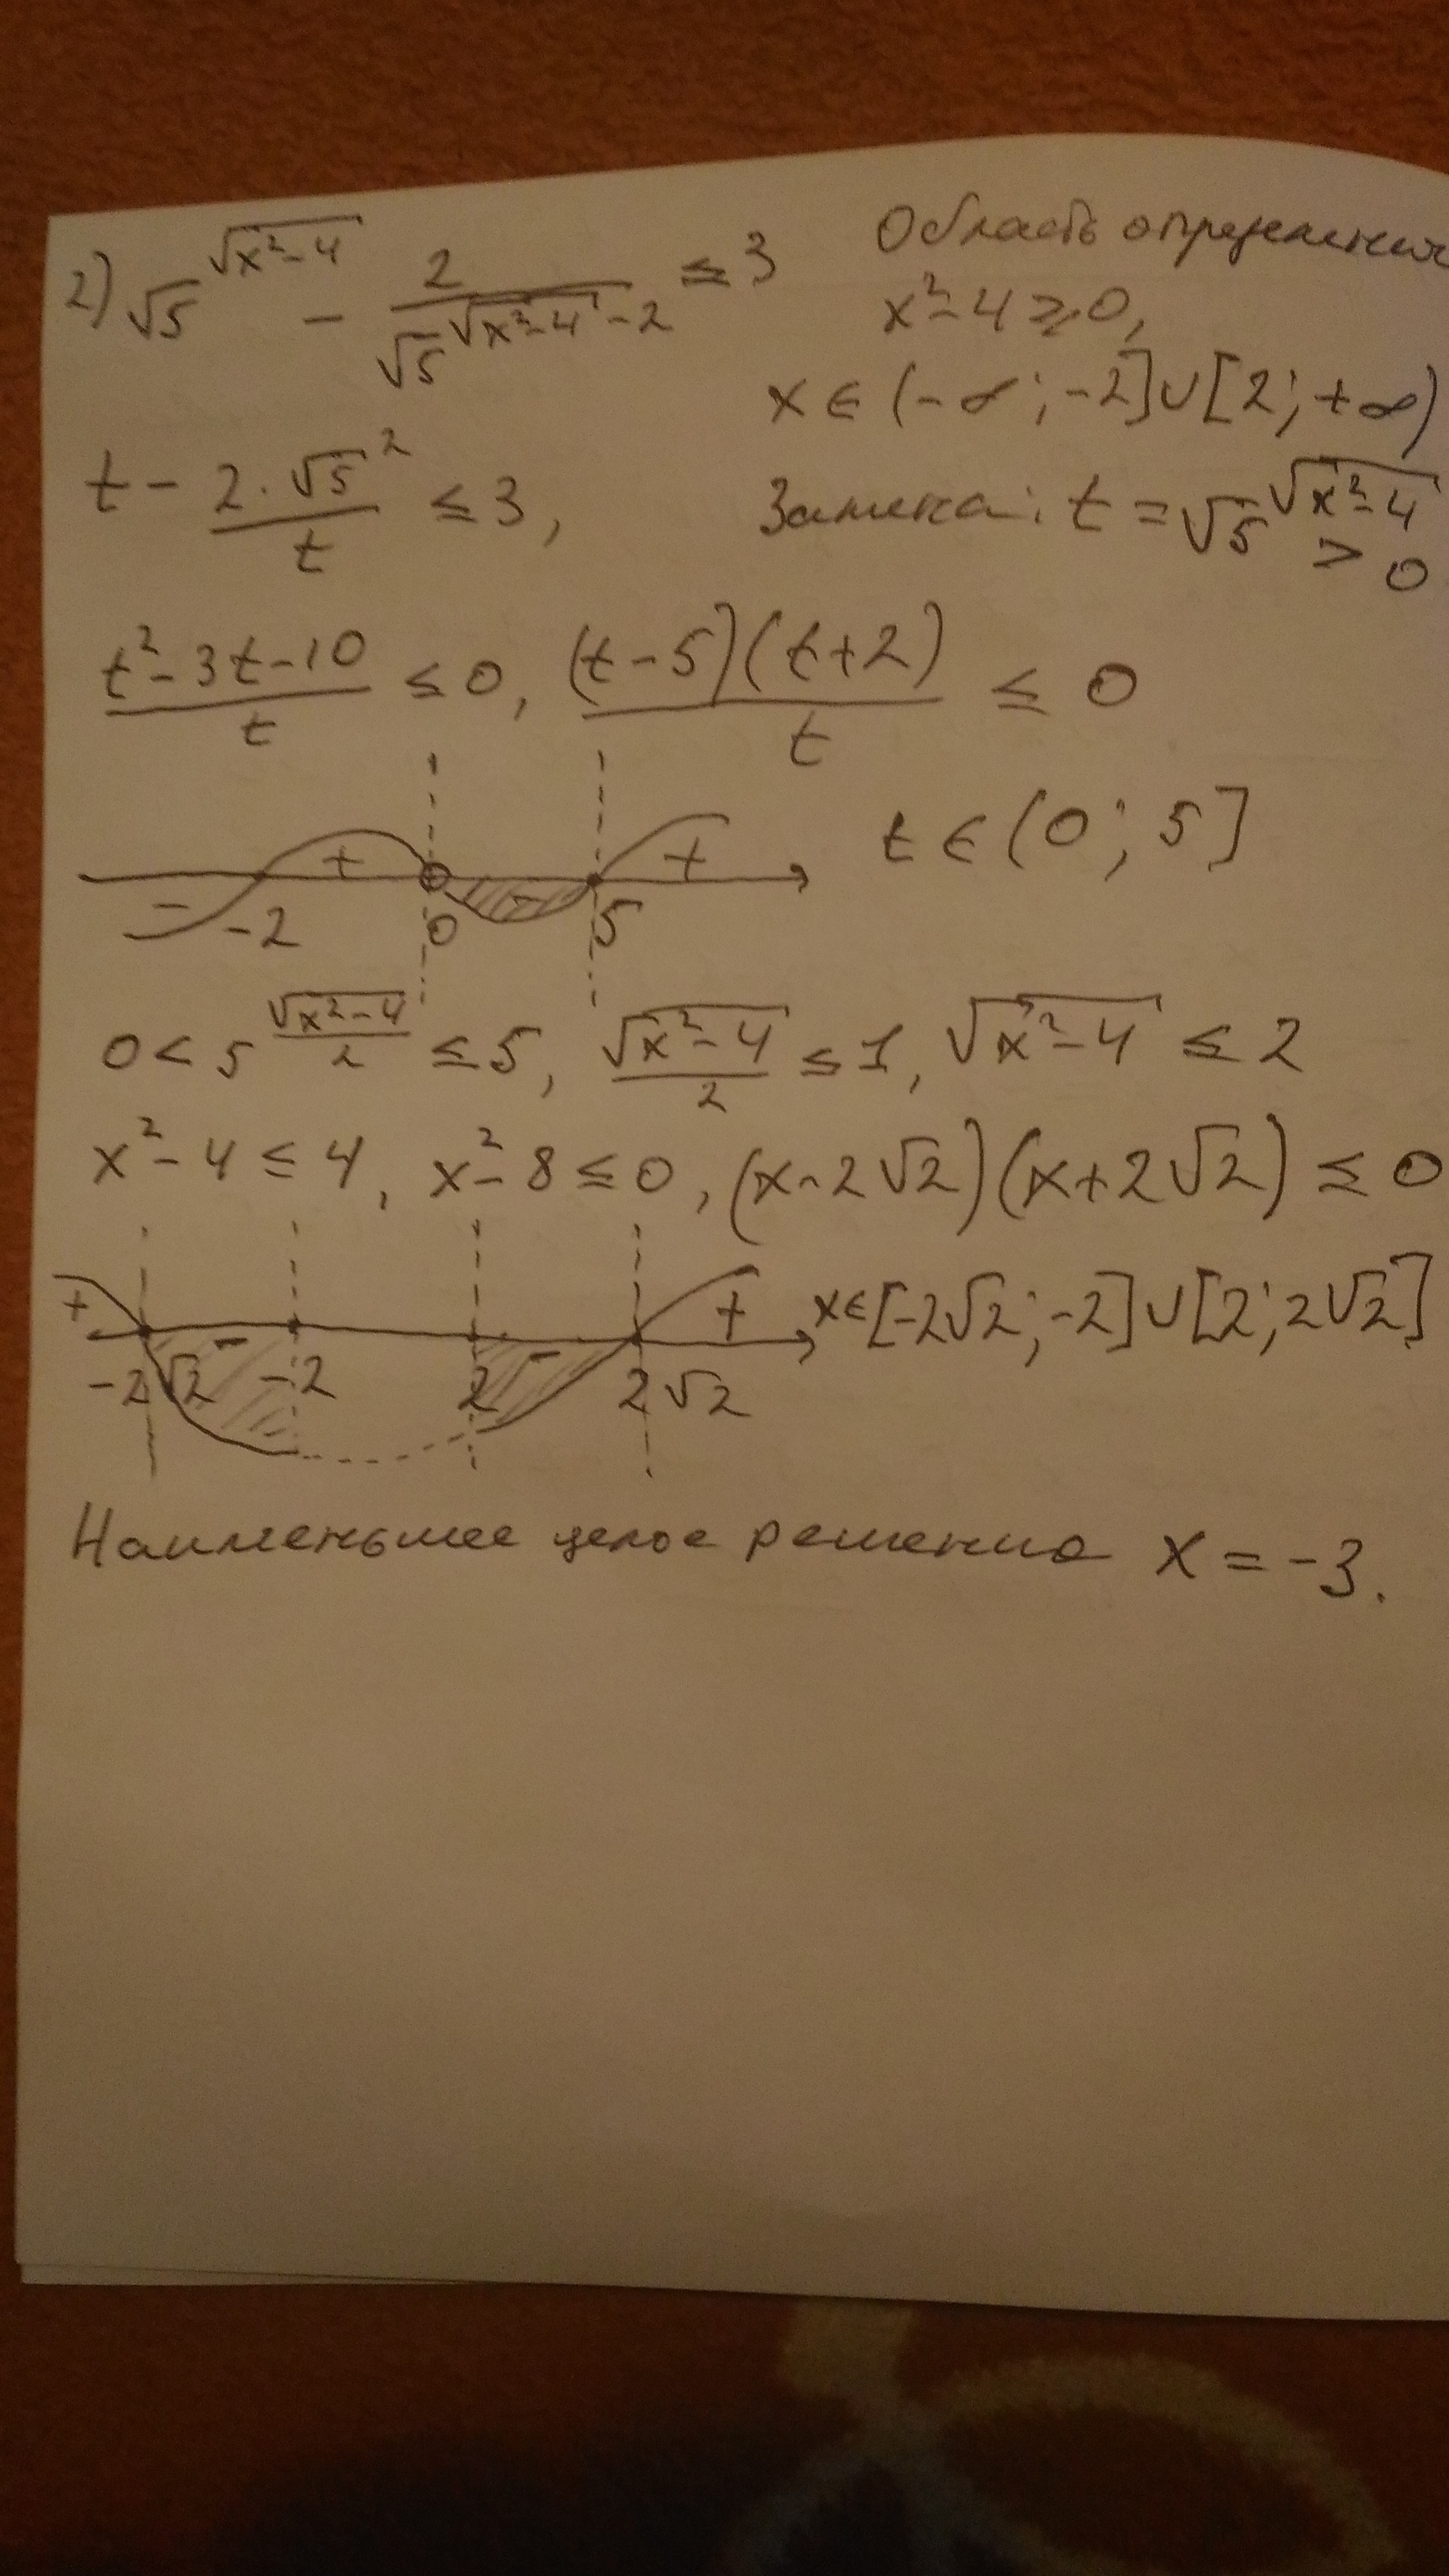 2) √5^√(x²-4) - 2/(√5^(√(x²-4) -2)) ≤ 3 Область определения
x²-4 ≥ 0,
x ∈ (-∞; -2] ∪ [2; +∞)
t - (2·√5²)/t ≤ 3, Замена: t = √5^√(x²-4) > 0
(t²-3t-10)/t ≤ 0, ((t-5)(t+2))/t ≤ 0
+ + t ∈ (0; 5]
- -2 0 - 5
0 < 5^(√(x²-4)/2) ≤ 5, √(x²-4)/2 ≤ 1, √(x²-4) ≤ 2
x²-4 ≤ 4, x²-8 ≤ 0, (x-2√2)(x+2√2) ≤ 0
+ - - + x∈[-2√2; -2] ∪ [2; 2√2]
-2√2 -2 2 2√2
Наименьшее целое решение x = -3.